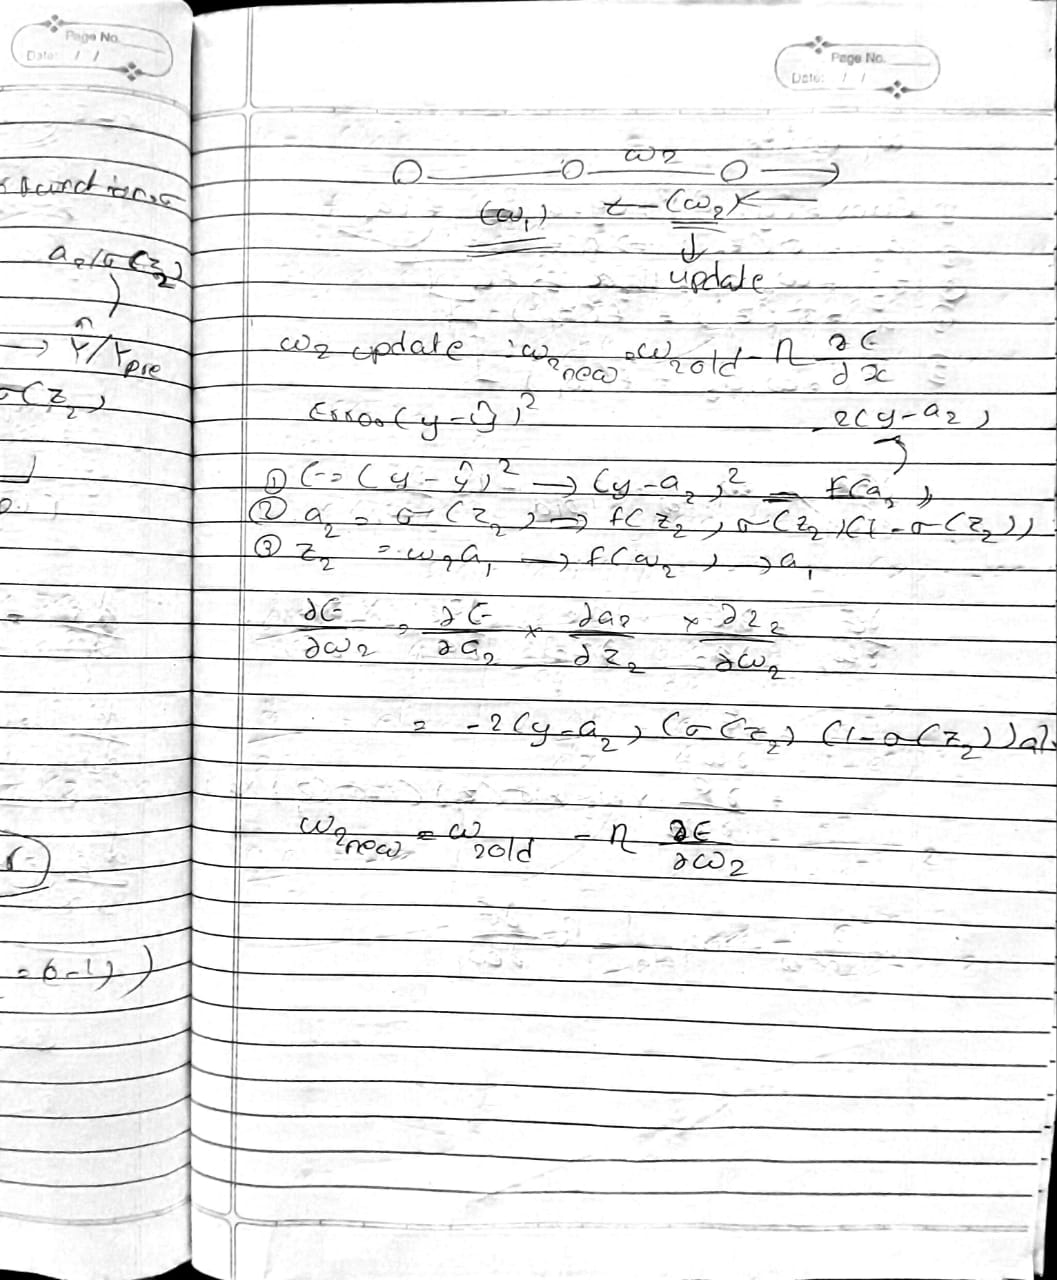 Page No.
Date: / /
a₂/σ(z₂)
→ Ŷ/Ypre
σ(z₂)
= 6-1)
Page No.
Date: / /
ω₂
(ω₁) ← (ω₂)
↓
update
ω₂ update : ω₂new = ω₂old - η ∂E/∂x
Error (y-ŷ)² 2(y-a₂)
① E = (y-ŷ)² → (y-a₂)² = f(a₂)
② a₂ = σ(z₂) → f(z₂) σ(z₂)(1-σ(z₂))
③ z₂ = ω₂a₁ → f(ω₂) → a₁
∂E/∂ω₂ = ∂E/∂a₂ × ∂a₂/∂z₂ × ∂z₂/∂ω₂
= -2(y-a₂) (σ(z₂) (1-σ(z₂)) a1
ω₂new = ω₂old - η ∂E/∂ω₂